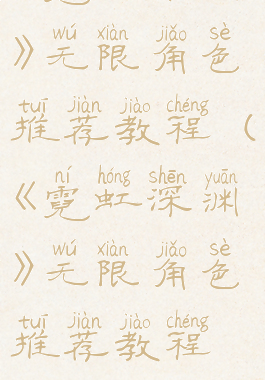 wú xiàn jiǎo sè
》无限角色
tuī jiàn jiào chéng
推荐教程（
ní hóng shēn yuān
《霓虹深渊
wú xiàn jiǎo sè
》无限角色
tuī jiàn jiào chéng
推荐教程